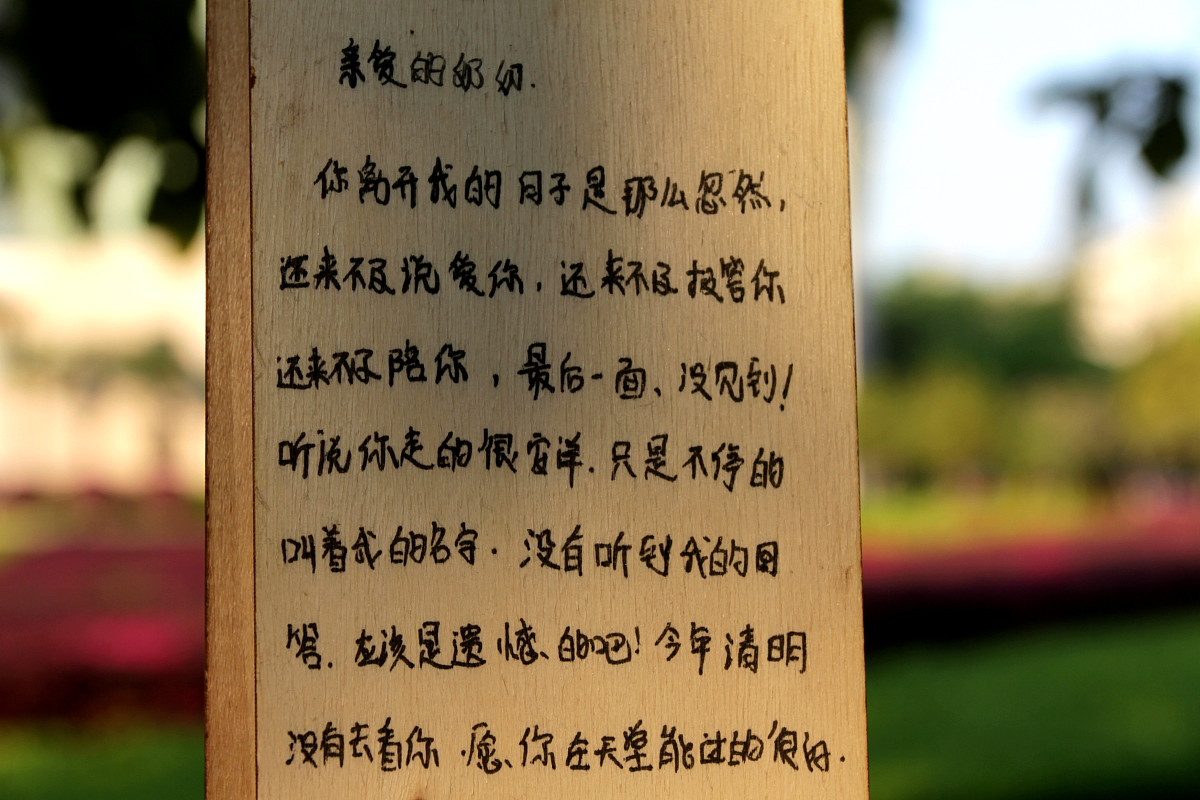 亲爱的奶奶.
你离开我的日子是那么忽然,
还来不及说爱你,还来不及报答你
还来不及陪你,最后一面、没见到!
听说你走的很安详.只是不停的
叫着我的名字.没有听到我的回
答.应该是遗憾、的吧!今年清明
没有去看你.愿、你在天堂能过的很好.